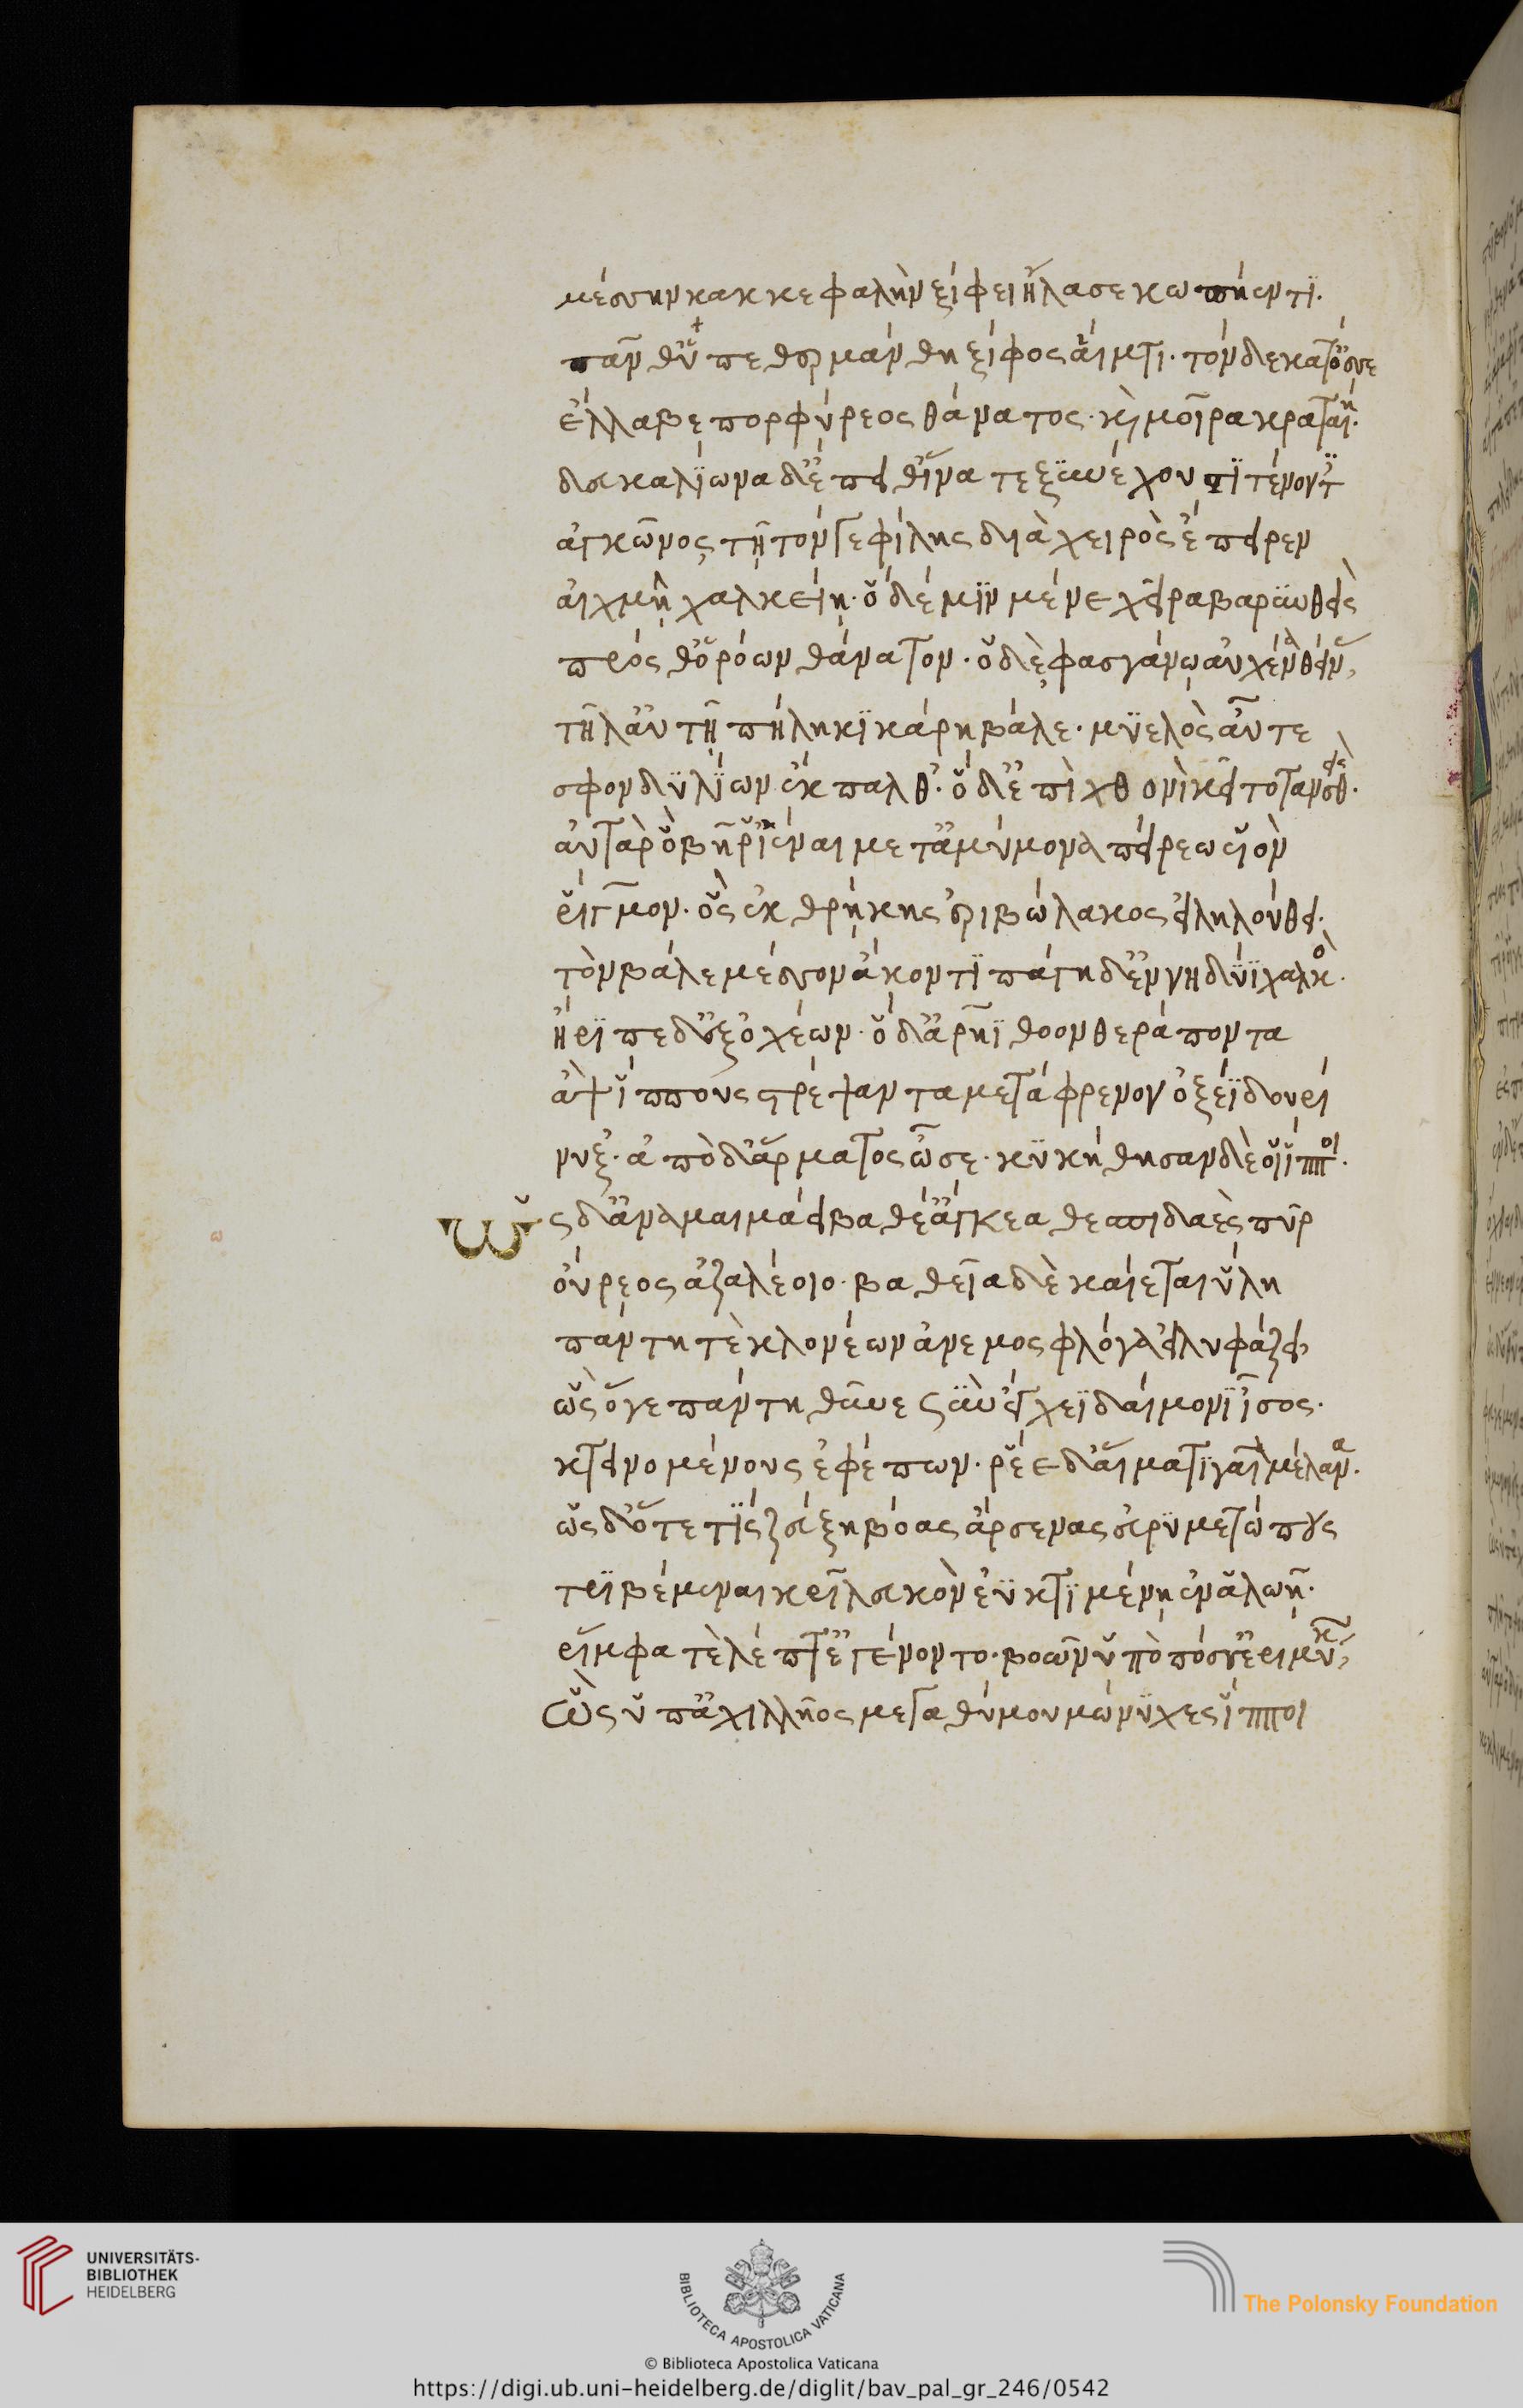 μέσσην κακ κεφαλὴν ξίφει ἤλασε κωπήεντι.
πᾶν θ' ὑπεθερμάνθη ξίφος αἵματι. τὸν δὲ κατ' ὄσσε
ἔλλαβε πορφύρεος θάνατος. καὶ μοῖρα κραταιή.
δευκαλίωνα δ' ἔπειθ' ἵνα τε ξυνέχουσι τένοντε
ἀγκῶνος τῇ τόν γε φίλης διὰ χειρὸς ἔπειρεν
αἰχμῇ χαλκείῃ. ὁ δέ μιν μένε χεῖρα βαρυνθεὶς
πρόσθ' ὁρόων θάνατον. ὁ δὲ φασγάνῳ αὐχένα θείνας
τῆλ' αὐτῇ πήληκι κάρη βάλε. μυελὸς αὖτε
σφονδυλίων ἔκπαλθ'. ὁ δ' ἐπὶ χθονὶ κεῖτο τανυσθείς.
αὐτὰρ ὁ βῆ ῥ' ἰέναι μετ' ἀμύμονα πείρεω υἱὸν
ῥίγμον. ὃς ἐκ θρῄκης ἐριβώλακος εἰληλούθει.
τὸν βάλε μέσσον ἄκοντι πάγη δ' ἐν νηδύι χαλκός.
ἤριπε δ' ἐξ ὀχέων. ὁ δ' ἀρηΐθοον θεράποντα
ἂψ ἵππους στρέψαντα μετάφρενον ὀξέϊ δουρὶ
νύξ'. ἀπὸ δ' ἅρματος ὦσε. κυκήθησαν δέ οἱ ἵπποι.
ὣς δ' ἀναμαιμάει βαθέ' ἄγκεα θεσπιδαὲς πῦρ
οὔρεος ἀζαλέοιο. βαθεῖα δὲ καίεται ὕλη
πάντῃ τὲ κλονέων ἄνεμος φλόγα εἰλυφάζει
ὣς ὅγε πάντῃ θῦνε σὺν ἔγχεϊ δαίμονι ἶσος.
κτεινομένους ἐφέπων. ῥέε δ' αἵματι γαῖα μέλαινα.
ὡς δ' ὅτε τὶς ζεύξῃ βόας ἄρσενας εὐρυμετώπους
τριβέμεναι κρῖ λευκὸν ἐϋκτιμένῃ ἐν ἀλωῇ.
ῥίμφα τὲ λέπτ' ἐγένοντο. βοῶν ὑπὸ πόσσ' ἐριμύκων
ὣς ὑπ' ἀχιλλῆος μεγαθύμου μώνυχες ἵπποι
UNIVERSITÄTS-
BIBLIOTHEK
HEIDELBERG
BIBLIOTECA APOSTOLICA VATICANA
The Polonsky Foundation
© Biblioteca Apostolica Vaticana
https://digi.ub.uni-heidelberg.de/diglit/bav_pal_gr_246/0542